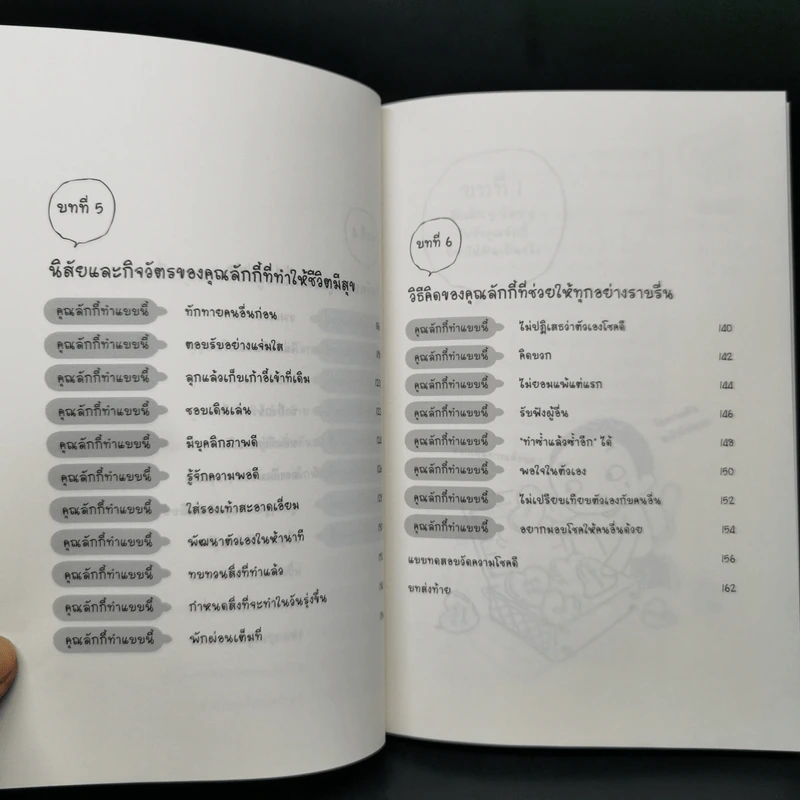 บทที่ 5
นิสัยและกิจวัตรของคุณลักกี้ที่ทำให้ชีวิตมีสุข
คุณลักกี้ทำแบบนี้ ทักทายคนอื่นก่อน
คุณลักกี้ทำแบบนี้ ตอบรับอย่างแจ่มใส
คุณลักกี้ทำแบบนี้ ลุกแล้วเก็บเก้าอี้เข้าที่เดิม
คุณลักกี้ทำแบบนี้ ชอบเดินเล่น
คุณลักกี้ทำแบบนี้ มีบุคลิกภาพดี
คุณลักกี้ทำแบบนี้ รู้จักความพอดี
คุณลักกี้ทำแบบนี้ ใส่รองเท้าสะอาดเอี่ยม
คุณลักกี้ทำแบบนี้ พัฒนาตัวเองในห้านาที
คุณลักกี้ทำแบบนี้ ทบทวนสิ่งที่ทำแล้ว
คุณลักกี้ทำแบบนี้ กำหนดสิ่งที่จะทำในวันรุ่งขึ้น
คุณลักกี้ทำแบบนี้ พักผ่อนเต็มที่
บทที่ 6
วิธีคิดของคุณลักกี้ที่ช่วยให้ทุกอย่างราบรื่น
คุณลักกี้ทำแบบนี้ ไม่ปฏิเสธว่าตัวเองโชคดี 140
คุณลักกี้ทำแบบนี้ คิดบวก 142
คุณลักกี้ทำแบบนี้ ไม่ยอมแพ้แต่แรก 144
คุณลักกี้ทำแบบนี้ รับฟังผู้อื่น 146
คุณลักกี้ทำแบบนี้ "ทำซ้ำแล้วซ้ำอีก" ได้ 148
คุณลักกี้ทำแบบนี้ พอใจในตัวเอง 150
คุณลักกี้ทำแบบนี้ ไม่เปรียบเทียบตัวเองกับคนอื่น 152
คุณลักกี้ทำแบบนี้ อยากมอบโชคให้คนอื่นด้วย 154
แบบทดสอบวัดความโชคดี 156
บทส่งท้าย 162